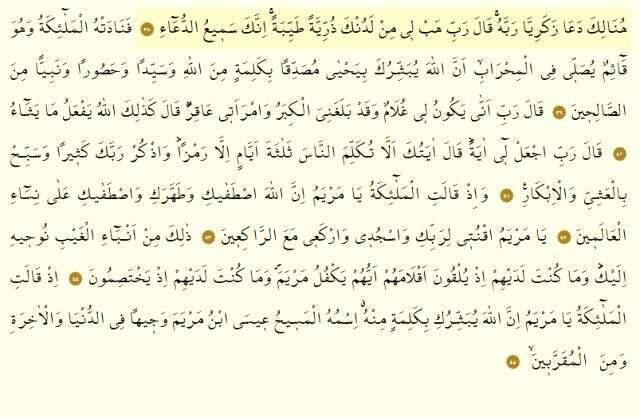 هُنَالِكَ دَعَا زَكَرِيَّا رَبَّهُۚ قَالَ رَبِّ هَبْ ل۪ي مِنْ لَدُنْكَ ذُرِّيَّةً طَيِّبَةًۚ اِنَّكَ سَم۪يعُ الدُّعَٓاءِ ﴿٣٨﴾ فَنَادَتْهُ الْمَلٰٓئِكَةُ وَهُوَ
قَٓائِمٌ يُصَلّ۪ي فِي الْمِحْرَابِۙ اَنَّ اللّٰهَ يُبَشِّرُكَ بِيَحْيٰى مُصَدِّقًا بِكَلِمَةٍ مِنَ اللّٰهِ وَسَيِّدًا وَحَصُورًا وَنَبِيًّا مِنَ
الصَّالِح۪ينَ ﴿٣٩﴾ قَالَ رَبِّ اَنّٰى يَكُونُ ل۪ي غُلَامٌ وَقَدْ بَلَغَنِيَ الْكِبَرُ وَامْرَاَت۪ي عَاقِرٌۜ قَالَ كَذٰلِكَ اللّٰهُ يَفْعَلُ مَا يَشَٓاءُ
﴿٤٠﴾ قَالَ رَبِّ اجْعَلْ ل۪ٓي اٰيَةًۜ قَالَ اٰيَتُكَ اَلَّا تُكَلِّمَ النَّاسَ ثَلٰثَةَ اَيَّامٍ اِلَّا رَمْزًاۜ وَاذْكُرْ رَبَّكَ كَث۪يرًا وَسَبِّحْ
بِالْعَشِيِّ وَالْاِبْكَارِ۟ ﴿٤١﴾ وَاِذْ قَالَتِ الْمَلٰٓئِكَةُ يَا مَرْيَمُ اِنَّ اللّٰهَ اصْطَفٰيكِ وَطَهَّرَكِ وَاصْطَفٰيكِ عَلٰى نِسَٓاءِ
الْعَالَم۪ينَ ﴿٤٢﴾ يَا مَرْيَمُ اقْنُت۪ي لِرَبِّكِ وَاسْجُد۪ي وَارْكَع۪ي مَعَ الرَّاكِع۪ينَ ﴿٤٣﴾ ذٰلِكَ مِنْ اَنْبَٓاءِ الْغَيْبِ نُوح۪يهِ
اِلَيْكَۜ وَمَا كُنْتَ لَدَيْهِمْ اِذْ يُلْقُونَ اَقْلَامَهُمْ اَيُّهُمْ يَكْفُلُ مَرْيَمَۖ وَمَا كُنْتَ لَدَيْهِمْ اِذْ يَخْتَصِمُونَ ﴿٤٤﴾ اِذْ قَالَتِ
الْمَلٰٓئِكَةُ يَا مَرْيَمُ اِنَّ اللّٰهَ يُبَشِّرُكِ بِكَلِمَةٍ مِنْهُۗ اِسْمُهُ الْمَس۪يحُ ع۪يسَى ابْنُ مَرْيَمَ وَج۪يهًا فِي الدُّنْيَا وَالْاٰخِرَةِ
وَمِنَ الْمُقَرَّب۪ينَۙ ﴿٤٥﴾